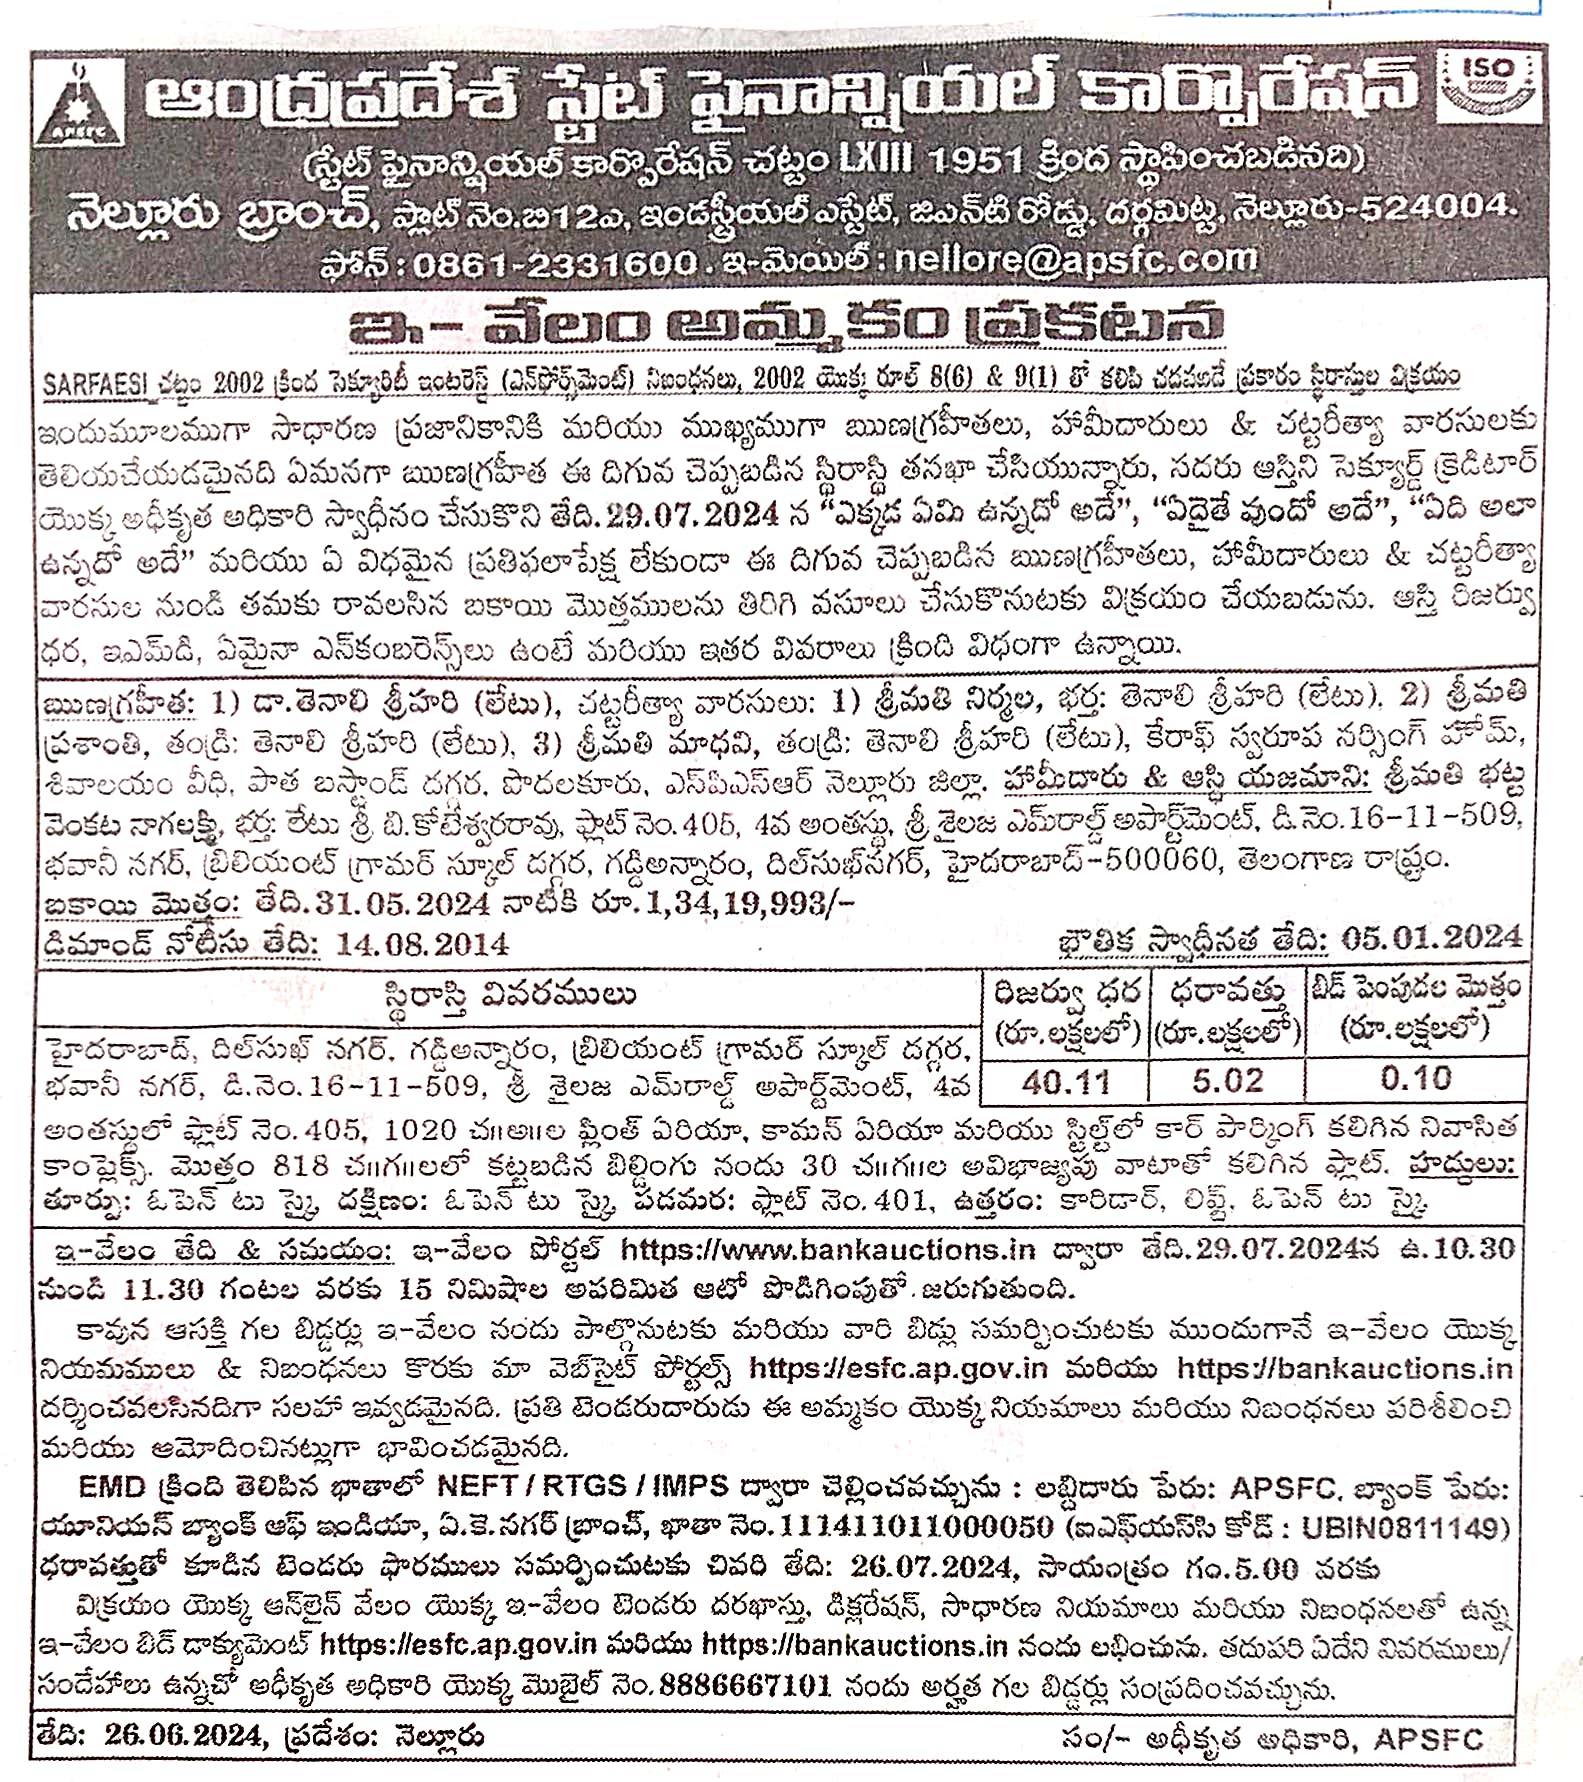 ఆంధ్రప్రదేశ్ స్టేట్ ఫైనాన్షియల్ కార్పొరేషన్
APSFC
ISO
(స్టేట్ ఫైనాన్షియల్ కార్పొరేషన్ చట్టం LXIII 1951 క్రింద స్థాపించబడినది)
నెల్లూరు బ్రాంచ్, ప్లాట్ నెం.బి12ఎ, ఇండస్ట్రియల్ ఎస్టేట్, జిఎన్‌టి రోడ్డు, దర్గమిట్ట, నెల్లూరు-524004.
ఫోన్ : 0861-2331600. ఇ-మెయిల్ : nellore@apsfc.com
ఇ- వేలం అమ్మకం ప్రకటన
SARFAESI చట్టం 2002 క్రింద సెక్యూరిటీ ఇంటరెస్ట్ (ఎన్‌ఫోర్స్‌మెంట్) నిబంధనలు, 2002 యొక్క రూల్ 8(6) & 9(1) తో కలిపి చదవబడే ప్రకారం స్థిరాస్తుల విక్రయం
ఇందుమూలముగా సాధారణ ప్రజానికానికి మరియు ముఖ్యముగా ఋణగ్రహీతలు, హామీదారులు & చట్టరీత్యా వారసులకు
తెలియచేయడమైనది ఏమనగా ఋణగ్రహీత ఈ దిగువ చెప్పబడిన స్థిరాస్థి తనఖా చేసియున్నారు, సదరు ఆస్తిని సెక్యూర్డ్ క్రెడిటార్
యొక్క అధీకృత అధికారి స్వాధీనం చేసుకొని తేది.29.07.2024 న “ఎక్కడ ఏమి ఉన్నదో అదే”, “ఏదైతే వుందో అదే”, “ఏది అలా
ఉన్నదో అదే” మరియు ఏ విధమైన ప్రతిఫలాపేక్ష లేకుండా ఈ దిగువ చెప్పబడిన ఋణగ్రహీతలు, హామీదారులు & చట్టరీత్యా
వారసుల నుండి తమకు రావలసిన బకాయి మొత్తములను తిరిగి వసూలు చేసుకొనుటకు విక్రయం చేయబడును. ఆస్తి రిజర్వు
ధర, ఇఎమ్‌డి, ఏమైనా ఎన్‌కంబరెన్స్‌లు ఉంటే మరియు ఇతర వివరాలు క్రింది విధంగా ఉన్నాయి.
ఋణగ్రహీత: 1) డా.తెనాలి శ్రీహరి (లేటు), చట్టరీత్యా వారసులు: 1) శ్రీమతి నిర్మల, భర్త: తెనాలి శ్రీహరి (లేటు), 2) శ్రీమతి
ప్రశాంతి, తండ్రి: తెనాలి శ్రీహరి (లేటు), 3) శ్రీమతి మాధవి, తండ్రి: తెనాలి శ్రీహరి (లేటు), కేరాఫ్ స్వరూప నర్సింగ్ హోమ్,
శివాలయం వీధి, పాత బస్టాండ్ దగ్గర, పొదలకూరు, ఎస్‌పిఎస్ఆర్ నెల్లూరు జిల్లా. హామీదారు & ఆస్థి యజమాని: శ్రీమతి భట్ట
వెంకట నాగలక్ష్మి, భర్త: లేటు శ్రీ బి.కోటేశ్వరరావు, ఫ్లాట్ నెం.405, 4వ అంతస్థు, శ్రీ శైలజ ఎమ్‌రాల్డ్ అపార్ట్‌మెంట్, డి.నెం.16-11-509,
భవానీ నగర్, బ్రిలియంట్ గ్రామర్ స్కూల్ దగ్గర, గడ్డిఅన్నారం, దిల్‌సుఖ్‌నగర్, హైదరాబాద్-500060, తెలంగాణ రాష్ట్రం.
బకాయి మొత్తం: తేది.31.05.2024 నాటికి రూ.1,34,19,993/-
డిమాండ్ నోటీసు తేది: 14.08.2014 భౌతిక స్వాధీనత తేది: 05.01.2024
స్థిరాస్తి వివరములు రిజర్వు ధర ధరావత్తు బిడ్ పెంపుదల మొత్తం
(రూ.లక్షలలో) (రూ.లక్షలలో) (రూ.లక్షలలో)
హైదరాబాద్, దిల్‌సుఖ్ నగర్, గడ్డిఅన్నారం, బ్రిలియంట్ గ్రామర్ స్కూల్ దగ్గర,
భవానీ నగర్, డి.నెం.16-11-509, శ్రీ శైలజ ఎమ్‌రాల్డ్ అపార్ట్‌మెంట్, 4వ 40.11 5.02 0.10
అంతస్థులో ఫ్లాట్ నెం.405, 1020 చ॥అ॥ల ప్లింత్ ఏరియా, కామన్ ఏరియా మరియు స్టిల్ట్‌లో కార్ పార్కింగ్ కలిగిన నివాసిత
కాంప్లెక్స్. మొత్తం 818 చ॥గ॥లలో కట్టబడిన బిల్డింగు నందు 30 చ॥గ॥ల అవిభాజ్యపు వాటాతో కలిగిన ఫ్లాట్. హద్దులు:
తూర్పు: ఓపెన్ టు స్కై, దక్షిణం: ఓపెన్ టు స్కై, పడమర: ఫ్లాట్ నెం.401, ఉత్తరం: కారిడార్, లిఫ్ట్, ఓపెన్ టు స్కై.
ఇ-వేలం తేది & సమయం: ఇ-వేలం పోర్టల్ https://www.bankauctions.in ద్వారా తేది.29.07.2024న ఉ.10.30
నుండి 11.30 గంటల వరకు 15 నిమిషాల అపరిమిత ఆటో పొడిగింపుతో జరుగుతుంది.
కావున ఆసక్తి గల బిడ్డర్లు ఇ-వేలం నందు పాల్గొనుటకు మరియు వారి బిడ్లు సమర్పించుటకు ముందుగానే ఇ-వేలం యొక్క
నియమములు & నిబంధనలు కొరకు మా వెబ్‌సైట్ పోర్టల్స్ https://esfc.ap.gov.in మరియు https://bankauctions.in
దర్శించవలసినదిగా సలహా ఇవ్వడమైనది. ప్రతి టెండరుదారుడు ఈ అమ్మకం యొక్క నియమాలు మరియు నిబంధనలు పరిశీలించి
మరియు ఆమోదించినట్లుగా భావించడమైనది.
EMD క్రింది తెలిపిన ఖాతాలో NEFT / RTGS / IMPS ద్వారా చెల్లించవచ్చును : లబ్ధిదారు పేరు: APSFC, బ్యాంక్ పేరు:
యూనియన్ బ్యాంక్ ఆఫ్ ఇండియా, ఏ.కె.నగర్ బ్రాంచ్, ఖాతా నెం.111411011000050 (ఐఎఫ్‌యస్‌సి కోడ్ : UBIN0811149)
ధరావత్తుతో కూడిన టెండరు ఫారములు సమర్పించుటకు చివరి తేది: 26.07.2024, సాయంత్రం గం.5.00 వరకు
విక్రయం యొక్క ఆన్‌లైన్ వేలం యొక్క ఇ-వేలం టెండరు దరఖాస్తు, డిక్లరేషన్, సాధారణ నియమాలు మరియు నిబంధనలతో ఉన్న
ఇ-వేలం బిడ్ డాక్యుమెంట్ https://esfc.ap.gov.in మరియు https://bankauctions.in నందు లభించును. తదుపరి ఏదేని వివరములు/
సందేహాలు ఉన్నచో అధీకృత అధికారి యొక్క మొబైల్ నెం.8886667101 నందు అర్హత గల బిడ్డర్లు సంప్రదించవచ్చును.
తేది: 26.06.2024, ప్రదేశం: నెల్లూరు సం/- అధీకృత అధికారి, APSFC